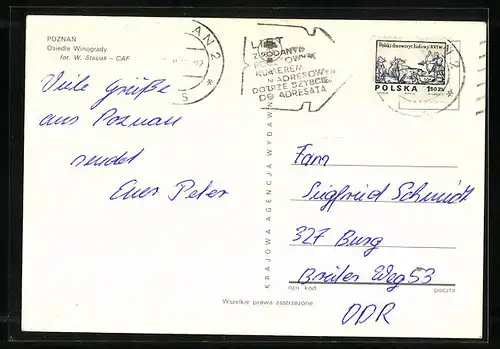 POZNAŃ
Osiedle Winogrady
fot. W. Stasiak – CAF
Viele Grüße
aus Poznan
sendet
Euer Peter
AN 2
LIST
Z PODANYM
POCZTOWYM
NUMEREM
ADRESOWYM
DOTRZE SZYBCIEJ
DO ADRESATA
Polski drzeworyt ludowy XVI w.
POLSKA 1.50 ZŁ
N 2
KRAJOWA AGENCJA WYDAWN
Fam
Siegfried Schmidt
327 Burg
Breiter Weg 53
ozn. kod
poczta
DDR
Wszelkie prawa zastrzeżone